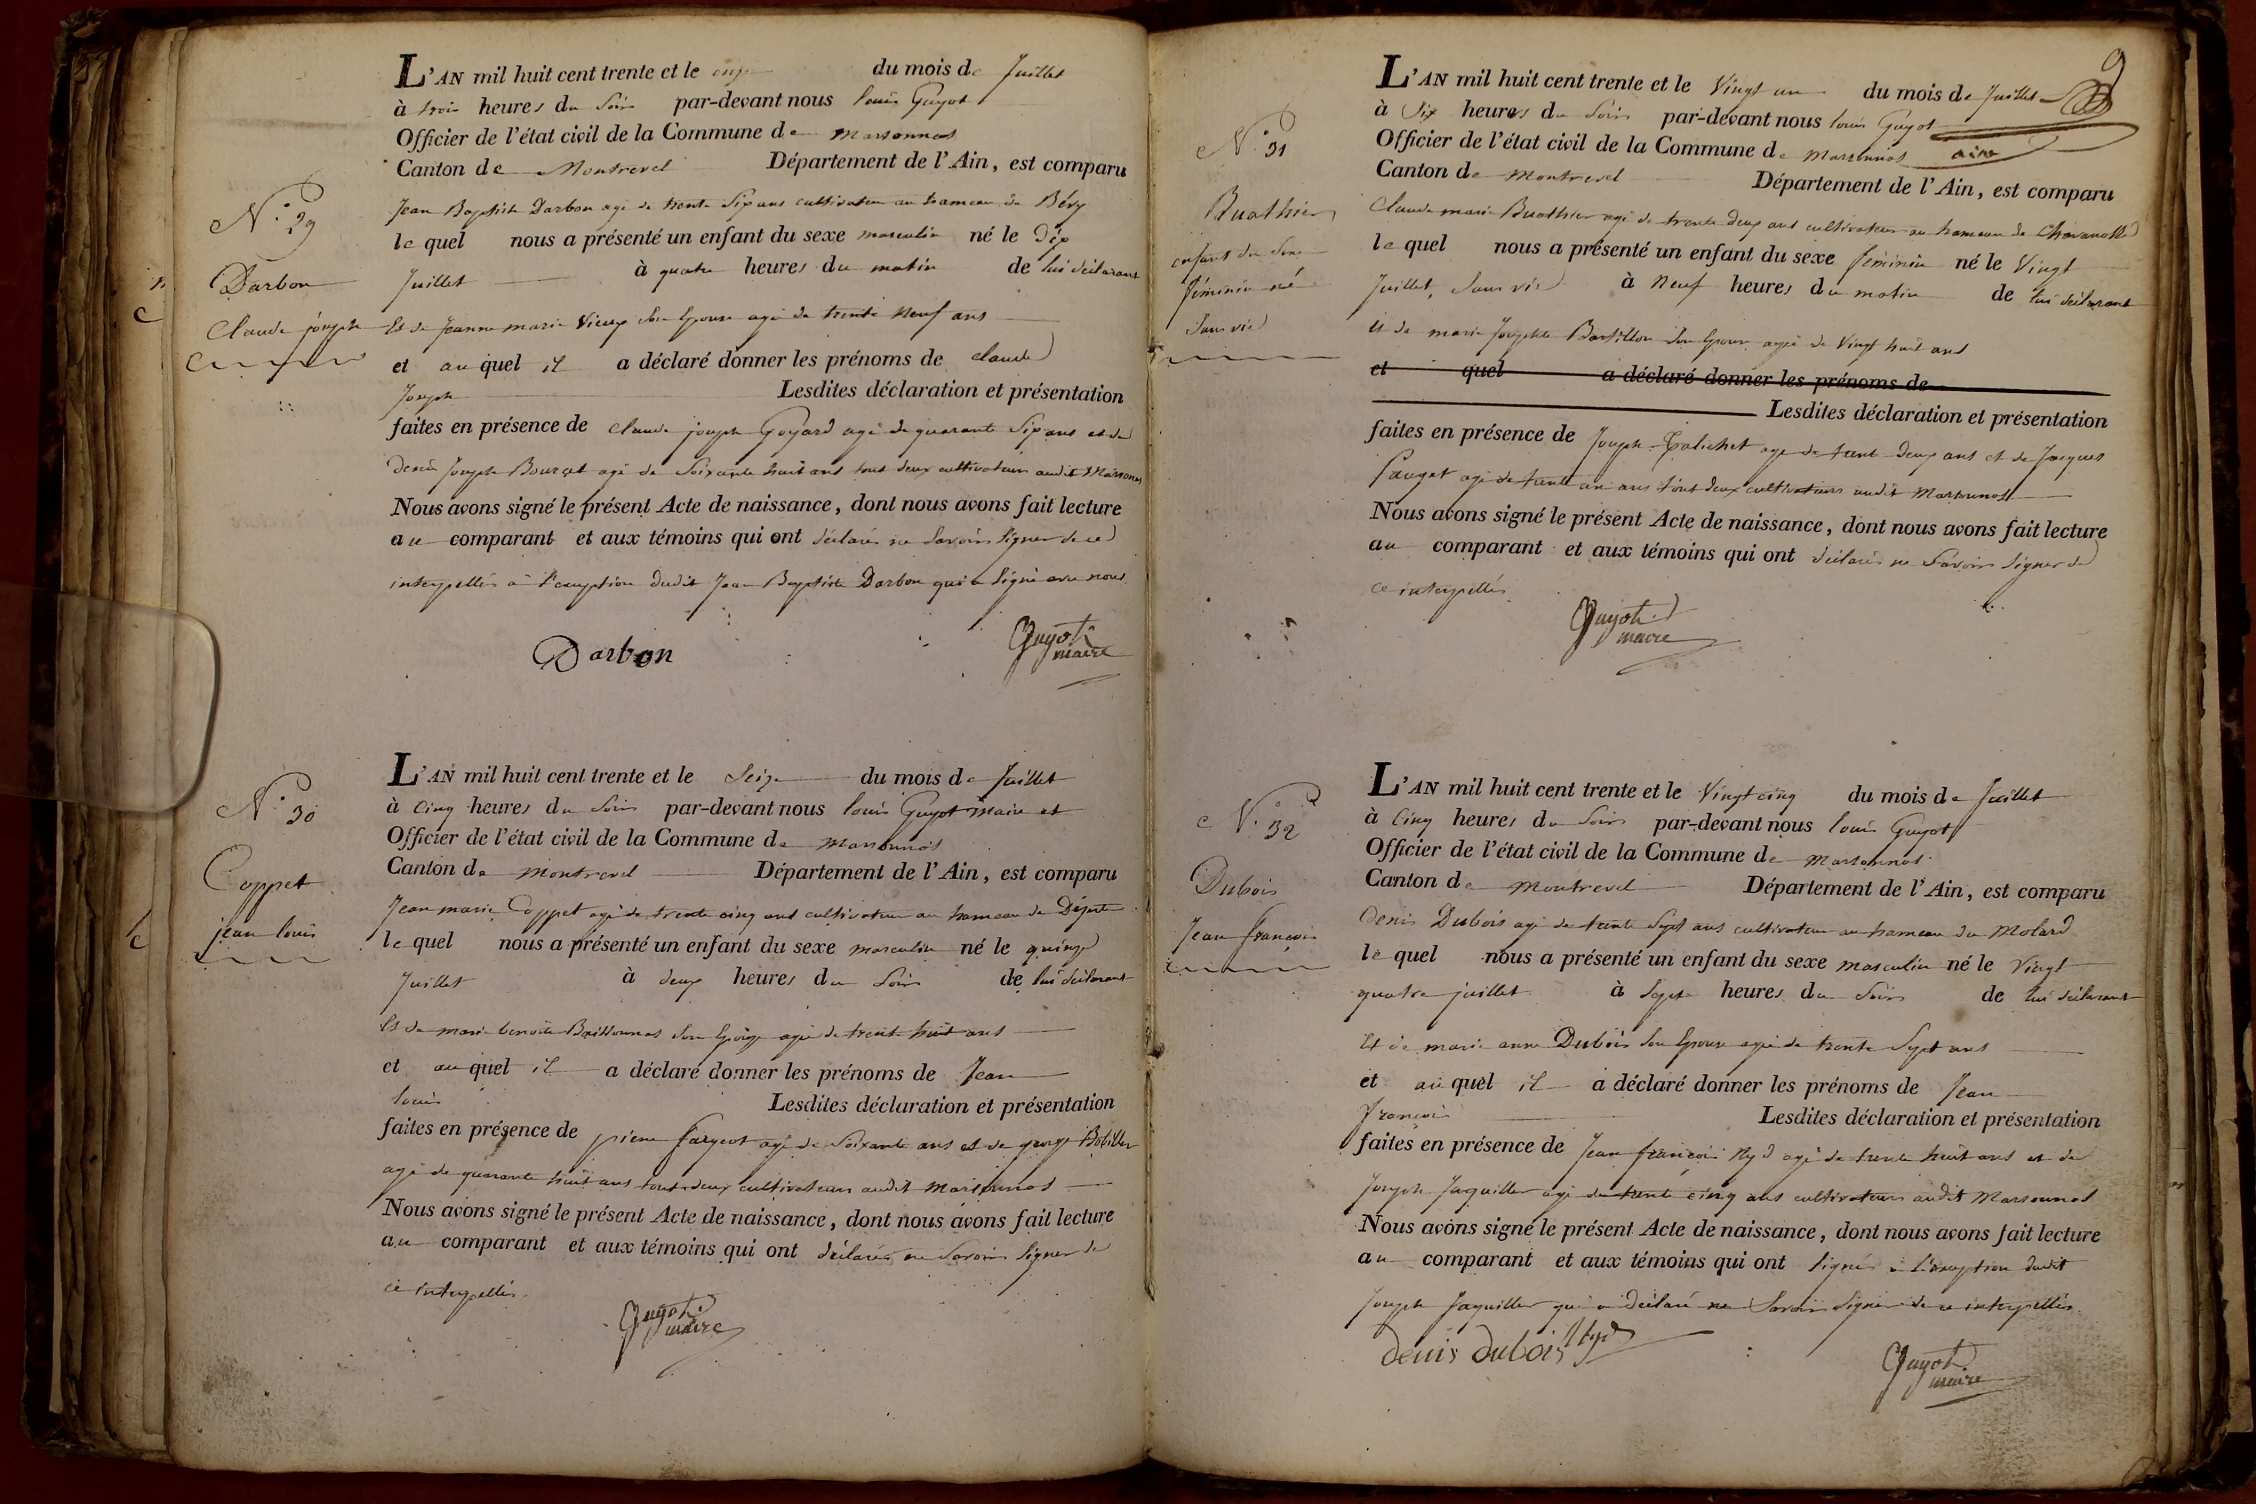 L'AN mil huit cent trente et le onze du mois de Juillet
à trois heures du Soir par-devant nous louis Guyot
Officier de l'état civil de la Commune de Marsonnas
Canton de Montrevel Département de l'Ain, est comparu
N.° 29
Jean Baptiste Darbon agé de trente Six ans cultivateur au hameau de Béry
le quel nous a présenté un enfant du sexe masculin né le dix
Darbon
Juillet à quatre heures du matin de lui déclarant
Claude joseph
Et de Jeanne marie Vieux Son Epouse agée de trente Neuf ans
et au quel il a déclaré donner les prénoms de Claude
Joseph Lesdites déclaration et présentation
faites en présence de Claude joseph Goyard agé de quarante Six ans et de
denis Joseph Bourcet agé de Soixante huit ans tout deux cultivateurs audit Marsonnas
Nous avons signé le présent Acte de naissance, dont nous avons fait lecture
au comparant et aux témoins qui ont déclarés ne Savoir Signer de ce
interpellés à l'exception dudit Jean Baptiste Darbon qui a Signé avec nous
Darbon
Guyot
maire
L'AN mil huit cent trente et le Seize du mois de Juillet
N.° 30
à Cinq heures du Soir par-devant nous louis Guyot Maire et
Officier de l'état civil de la Commune de Marsonnas
Canton de Montrevel Département de l'Ain, est comparu
Coppet
jean louis
Jean marie Coppet agé de trente cinq ans cultivateur au hameau de
le quel nous a présenté un enfant du sexe masculin né le quinze
Juillet à deux heures du Soir de lui déclarant
Et de marie benoite Boissonnas Son Epouse agée de trente huit ans
et au quel il a déclaré donner les prénoms de Jean
louis Lesdites déclaration et présentation
faites en présence de pierre fargeot agé de Soixante ans et de george Bobillon
agé de quarante huit ans tout deux cultivateurs audit Marsonnas
Nous avons signé le présent Acte de naissance, dont nous avons fait lecture
au comparant et aux témoins qui ont déclarés ne Savoir Signer de
ce interpellés.
Guyot
maire
9
L'AN mil huit cent trente et le Vingt un du mois de Juillet
à Six heures du Soir par-devant nous louis Guyot
Officier de l'état civil de la Commune de Marsonnas
Canton de Montrevel Département de l'Ain, est comparu
N.° 31
Buathier
enfant du Sexe
féminin né
Sans vie
Claude marie Buathier agé de trente deux ans cultivateur au hameau de Chavanosse
le quel nous a présenté un enfant du sexe féminin né le Vingt
Juillet, Sans vie à Neuf heures du matin de lui déclarant
et de marie Josephte Bastillon Son Epouse agée de Vingt huit ans
et quel a déclaré donner les prénoms de
Lesdites déclaration et présentation
faites en présence de Joseph Galichet agé de trente deux ans et de Jacques
Pauget agé de trente un ans tout deux cultivateurs audit Marsonnas
Nous avons signé le présent Acte de naissance, dont nous avons fait lecture
au comparant et aux témoins qui ont déclarés ne Savoir Signer de
ce interpellés
Guyot
maire
L'AN mil huit cent trente et le Vingt cinq du mois de Juillet
N.° 32
à Cinq heures du Soir par-devant nous louis Guyot
Officier de l'état civil de la Commune de Marsonnas
Canton de Montrevel Département de l'Ain, est comparu
Dubois
Jean françois
denis Dubois agé de trente Sept ans cultivateur au hameau du Molard
le quel nous a présenté un enfant du sexe masculin né le Vingt
quatre juillet à Sept heures du Soir de lui déclarant
Et de marie anne Dubois Son Epouse agée de trente Sept ans
et au quel il a déclaré donner les prénoms de Jean
françois Lesdites déclaration et présentation
faites en présence de Jean françois Nyd agé de trente huit ans et de
Joseph Jaquiller agé de trente cinq ans cultivateurs audit Marsonnas
Nous avons signé le présent Acte de naissance, dont nous avons fait lecture
au comparant et aux témoins qui ont Signés à l'exception dudit
Joseph Jaquiller qui a déclaré ne Savoir Signer de ce interpellés
denis dubois Nyd
Guyot
maire